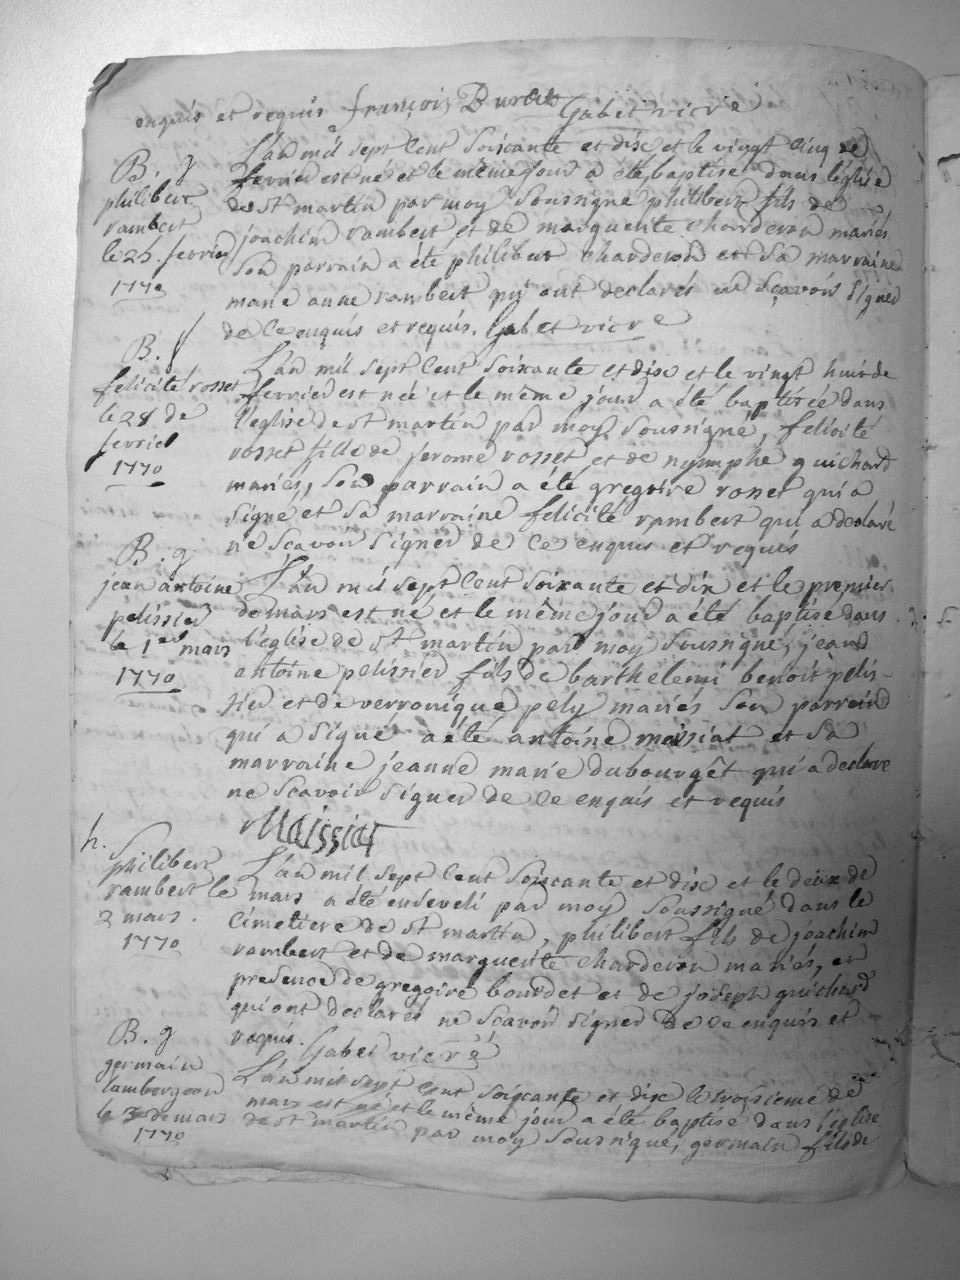 enquis et requis françois Burtet Gabet vicre
B. g
philibert
rambert
le 25. fevrier
1770
L'an mil sept Cent soixante et dix et le vingt cinq de
fevrier est né et le même jour a été baptisé dans l'église
de st martin par moy soussigné philibert fils de
joachim rambert et de marguerite charderon mariés
son parrain a été philibert charderon et sa marraine
marie anne rambert qui ont declarés ne sçavoir signer
de ce enquis et requis. Gabet vicre
B. f
felicité rosset
le 28 de
fevrier
1770
L'an mil sept Cent soixante et dix et le vingt huit de
fevrier est née et le même jour a été baptisée dans
l'eglise de st martin par moy soussigné, felicité
rosset fille de jerome rosset et de nymphe guichard
mariés, son parrain a été gregoire rosset qui a
signé et sa marraine felicité rambert qui a declaré
ne scavoir signer de ce enquis et requis
B. g
jean antoine
pelissier
le 1er mars
1770
L'an mil sept Cent soixante et dix et le premier
de mars est né et le même jour a été baptisé dans
l'eglise de st martin par moy soussigné, jean
antoine pelissier fils de barthelemi benoit pelis-
sier et de verronique pely mariés son parrain
qui a signé a été antoine maisiat et sa
marraine jeanne marie dubourgêt qui a declaré
ne scavoir signer de ce enquis et requis
Maissiat
h.
philibert
rambert le
2 mars.
1770
L'an mil sept Cent soixante et dix et le deux de
mars a été enseveli par moy soussigné dans le
cimetiere de st martin, philibert fils de joachim
rambert et de marguerite charderon mariés, en
presence de gregoire bourdet et de joseph guichard
qui ont declarés ne scavoir signer de ce enquis et
requis. Gabet vicre
B. g
germain
lambergeon
le 3 de mars
1770
L'an mil sept Cent soixante et dix le troisieme de
mars est né et le même jour a été baptisé dans l'eglise
de st martin par moy soussigné, germain fils de